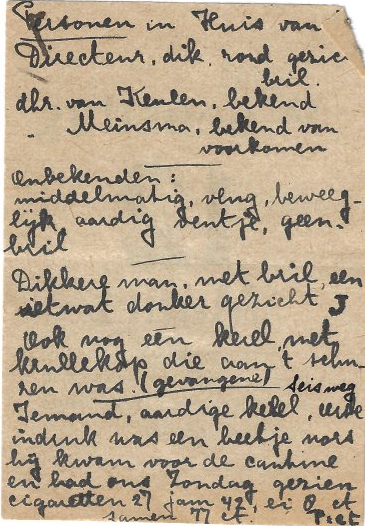 Personen in Huis van
Directeur, dik, rond gezic
bril.
dhr. van Keulen, bekend
" Meinsma, bekend van
voorkomen
Onbekenden:
middelmatig, vlug, beweeg-
lijk aardig ventje, geen
bril
Dikkere man, met bril, een
ietwat donker gezicht
Ook nog een kerel, met
krullekop die aan 't schu-
ren was. (gevangene)
Iemand, aardige kerel, eerste
indruk was een beetje nors
hij kwam voor de cantine
en had ons Zondag gezien
cigaretten 27 jam 42, ei 8 ct
samen 77 ct.